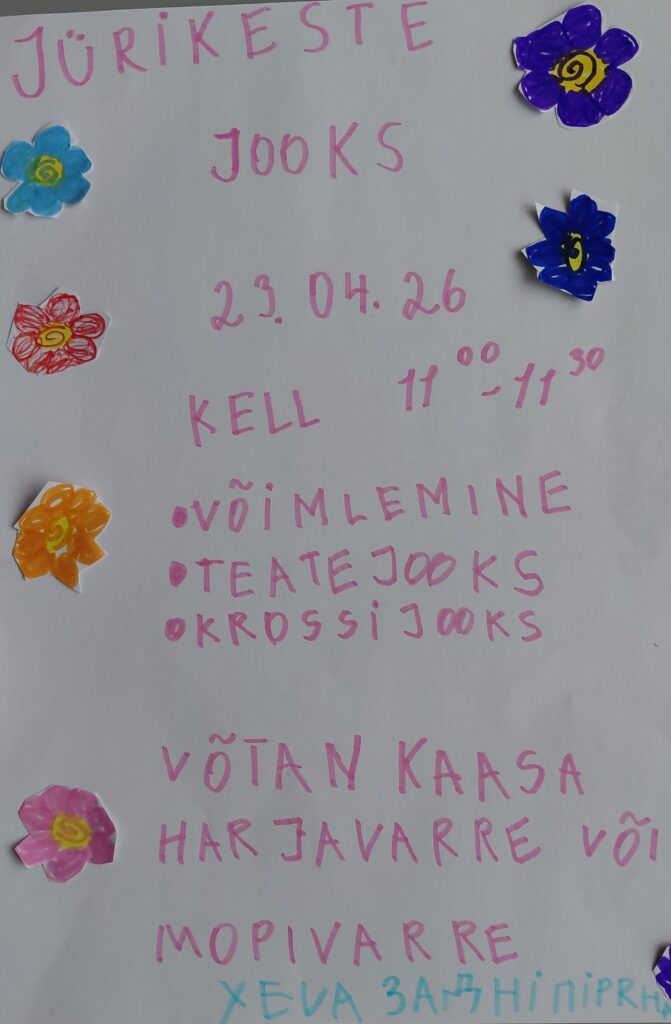 JÜRIKESTE
JOOKS
23.04.26
KELL 11 00 - 11 30
•VÕIMLEMINE
•TEATEJOOKS
•KROSSIJOOKS
VÕTAN KAASA
HARJAVARRE VÕI
MOPIVARRE